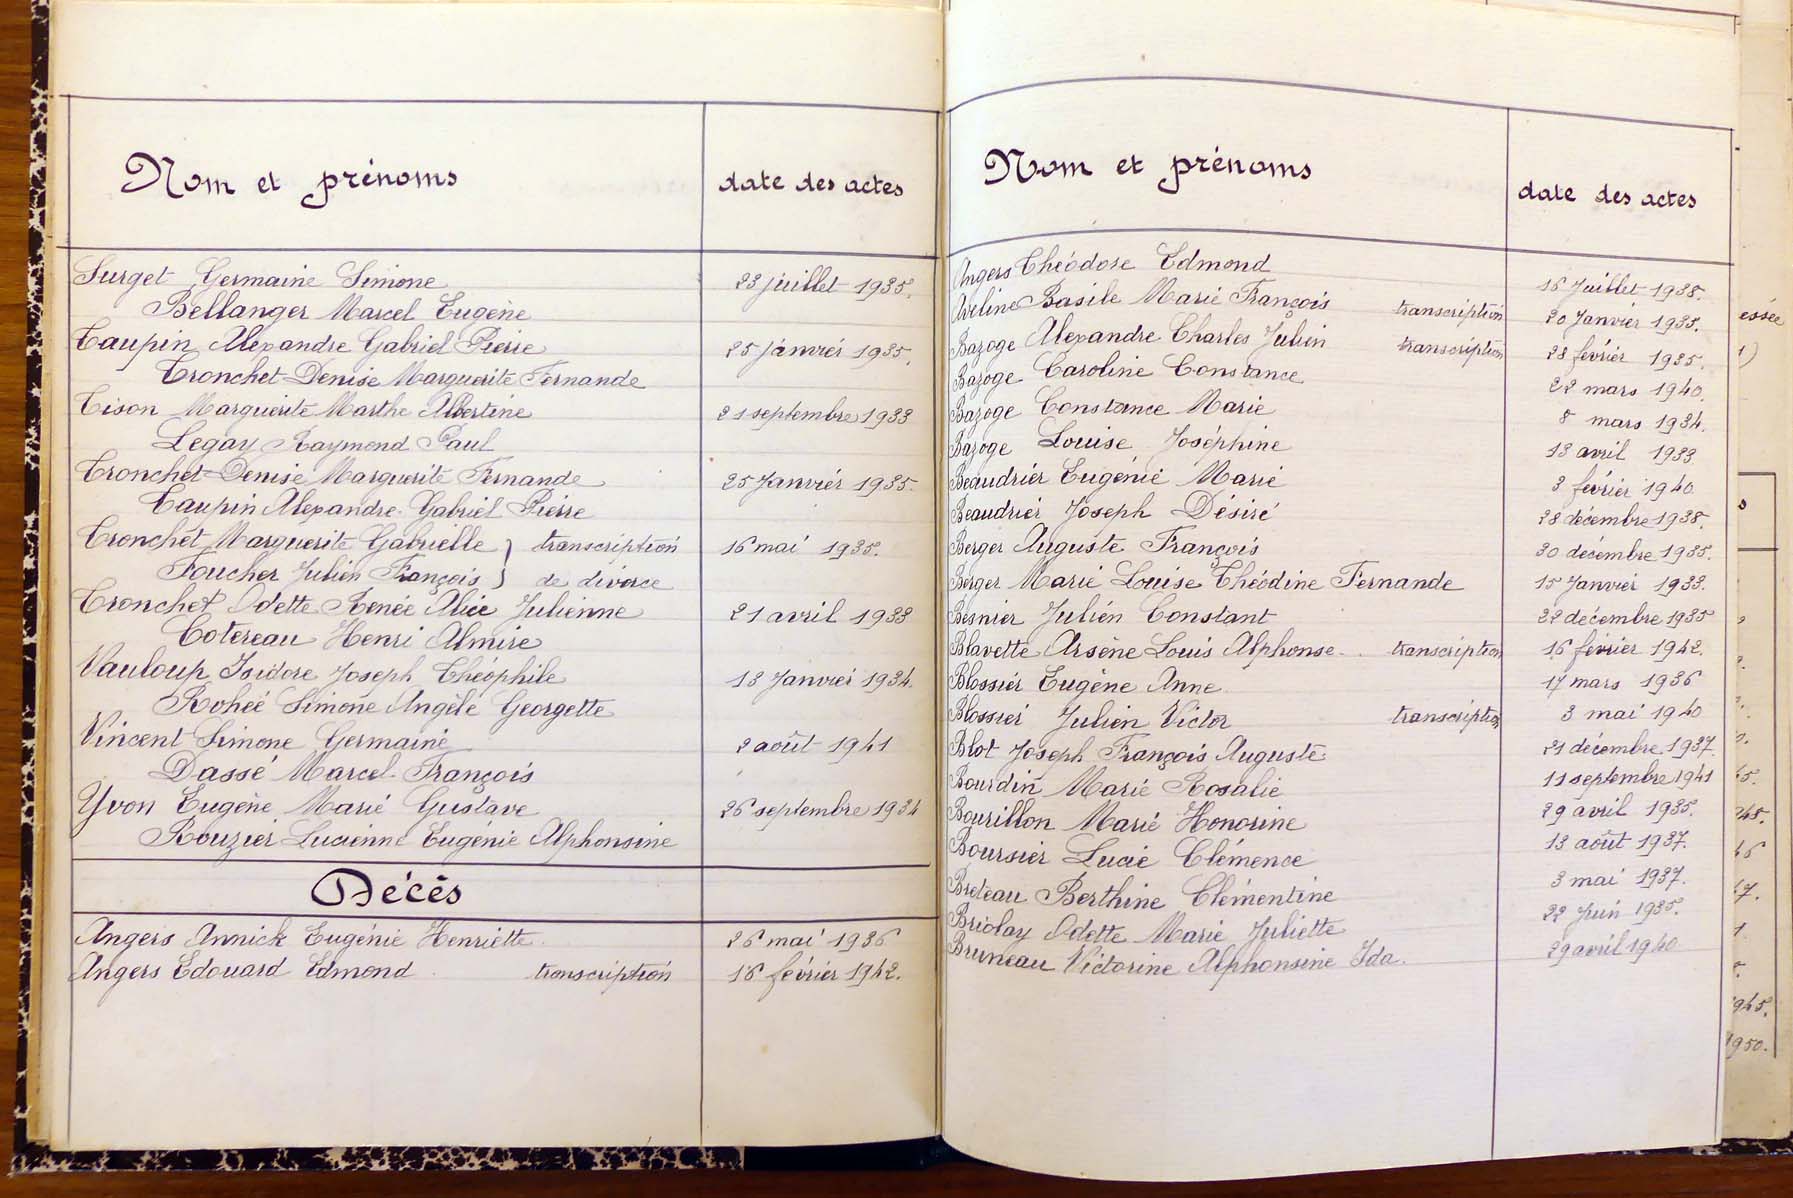 Nom et prénoms date des actes
Surget Germaine Simone 23 juillet 1935.
Bellanger Marcel Eugène
Taupin Alexandre Gabriel Pierre 25 janvier 1935.
Tronchet Denise Marguerite Fernande
Tison Marguerite Marthe Albertine 21 septembre 1933
Legay Raymond Paul
Tronchet Denise Marguerite Fernande 25 Janvier 1935.
Taupin Alexandre Gabriel Pierre
Tronchet Marguerite Gabrielle } transcription 16 mai 1935.
Foucher Julien François } de divorce
Tronchet Odette Renée Alice Julienne 21 avril 1933
Cotereau Henri Almire
Vauloup Isidore Joseph Théophile 13 Janvier 1934.
Roheé Simone Angèle Georgette
Vincent Simone Germaine 2 août 1941
Dassé Marcel François
Yvon Eugène Marie Gustave 26 septembre 1934
Rouzier Lucienne Eugénie Alphonsine
Décès
Angers Annick Eugénie Henriette 26 mai 1936
Angers Edouard Edmond transcription 16 février 1942.
Nom et prénoms date des actes
Angers Théodore Edmond 16 Juillet 1938.
Aveline Basile Marie François transcription 20 Janvier 1935.
Bazoge Alexandre Charles Julien transcription 28 février 1935.
Bazoge Caroline Constance 22 mars 1940.
Bazoge Constance Marie 8 mars 1934.
Bazoge Louise Joséphine 13 avril 1933
Beaudrier Eugénie Marie 3 février 1940
Beaudrier Joseph Désiré 28 décembre 1938.
Berger Auguste François 30 décembre 1935.
Berger Marie Louise Théodine Fernande 15 Janvier 1933.
Besnier Julien Constant 22 décembre 1935
Blavette Arsène Louis Alphonse transcription 16 février 1942.
Blossier Eugène Anne 17 mars 1936
Blossier Julien Victor transcription 3 mai 1940
Blot Joseph François Auguste 21 décembre 1937.
Bourdin Marie Rosalie 11 septembre 1941
Bourillon Marie Honorine 29 avril 1935.
Boursier Lucie Clémence 13 août 1937.
Breteau Berthine Clémentine 3 mai 1937.
Briolay Odette Marie Juliette 22 juin 1935.
Bruneau Victorine Alphonsine Ida. 29 avril 1940